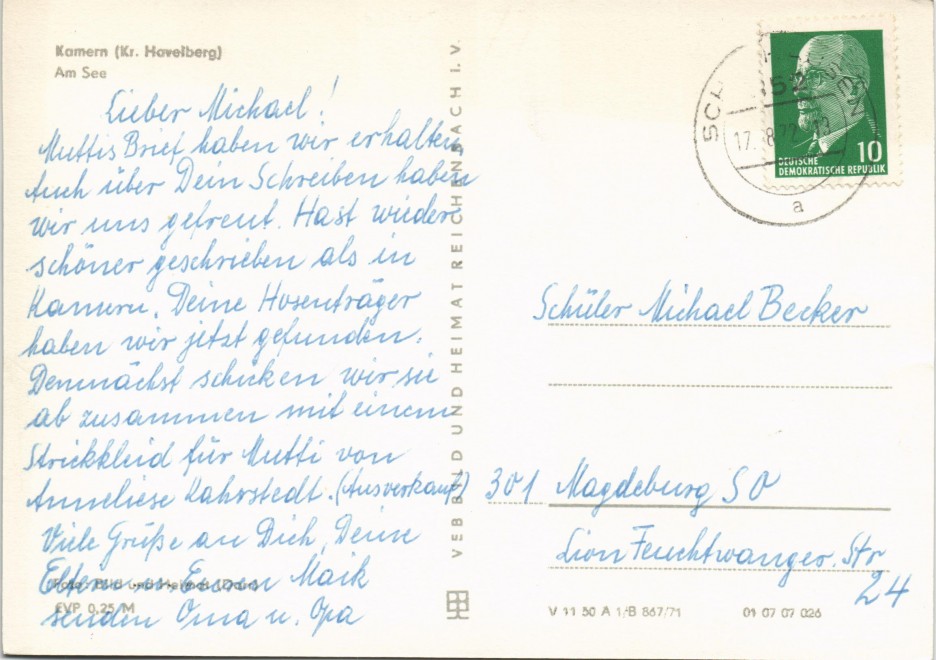 Kamern (Kr. Havelberg)
Am See
Lieber Michael!
Muttis Brief haben wir erhalten
Auch über Dein Schreiben haben
wir uns gefreut. Hast wieder
schöner geschrieben als in
Kamern. Deine Hosenträger
haben wir jetzt gefunden.
Demnächst schicken wir sie
ab zusammen mit einem
Strickkleid für Mutti von
Anneliese Kahrstedt. (Ausverkauf)
Viele Grüße an Dich, Deine
Eltern u. Maik
senden Oma u. Opa
Foto: Bild und Heimat
EVP 0,25 M
VEB BILD UND HEIMAT REICHENBACH I. V.
17. 8. 72
a
10
DEUTSCHE
DEMOKRATISCHE REPUBLIK
Schüler Michael Becker
301 Magdeburg SO
Lion Feuchtwanger. Str
24
V 11 50 A 1/B 867/71 01 07 07 026